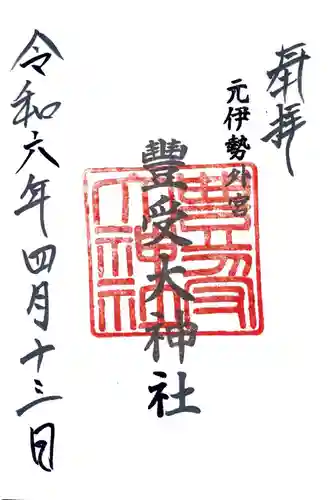 奉拝
元伊勢外宮
豊受大神社
豐受大神社
令和六年四月十三日